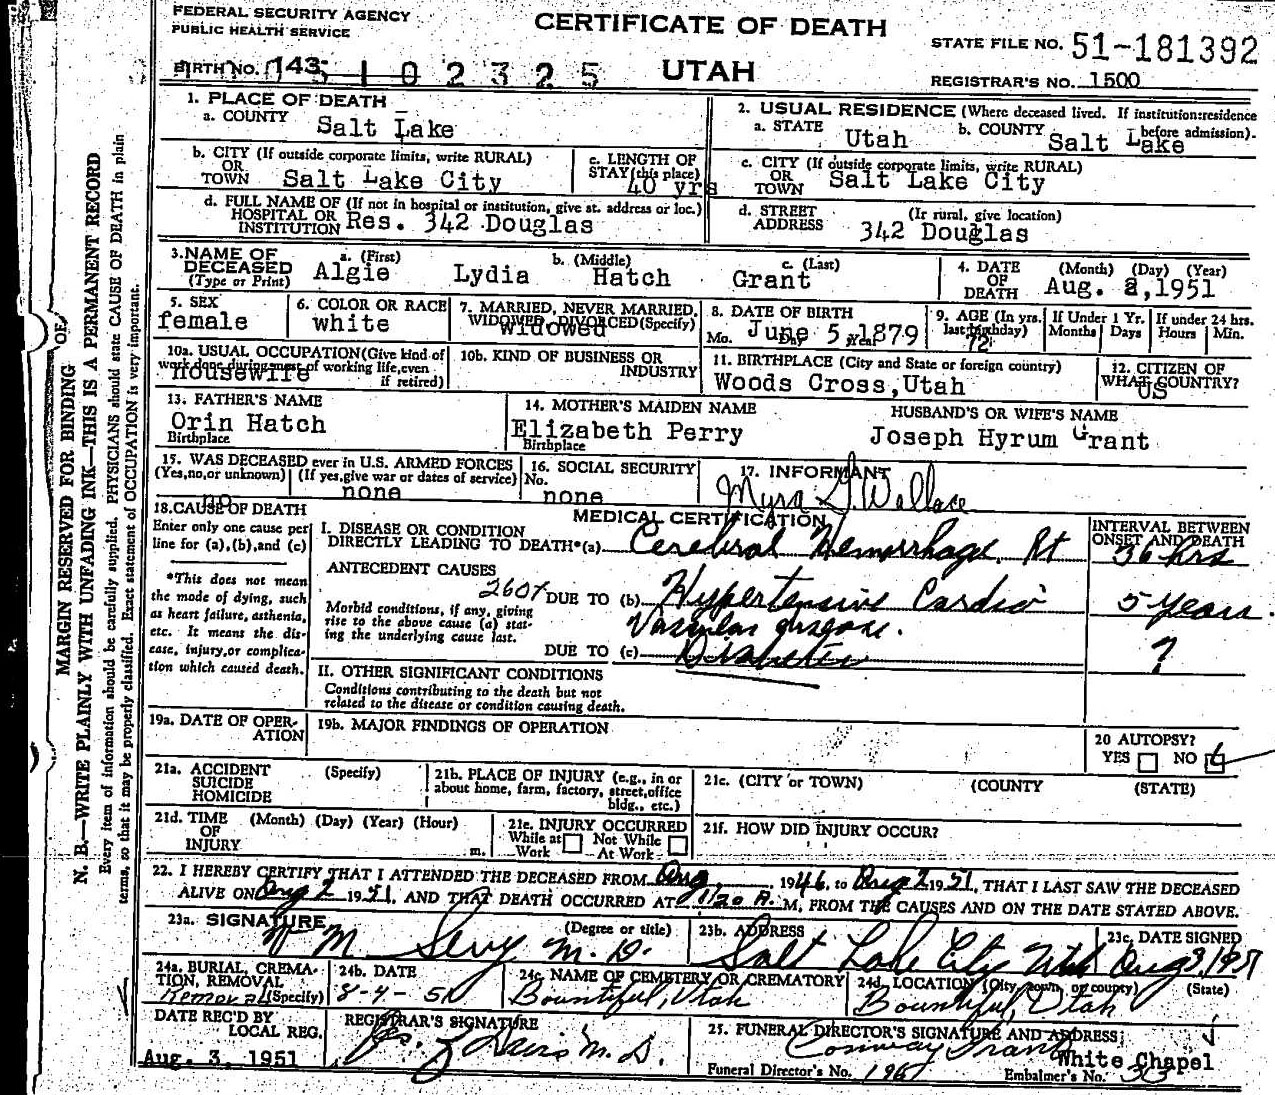 FEDERAL SECURITY AGENCY
PUBLIC HEALTH SERVICE
CERTIFICATE OF DEATH
STATE FILE NO. 51-181392
BIRTH NO. 143 5 1 0 2 3 2 5
UTAH
REGISTRAR'S NO. 1500
MARGIN RESERVED FOR BINDING
N. B.—WRITE PLAINLY WITH UNFADING INK—THIS IS A PERMANENT RECORD
Every item of information should be carefully supplied. PHYSICIANS should state CAUSE OF DEATH in plain
terms, so that it may be properly classified. Exact statement of OCCUPATION is very important.
1. PLACE OF DEATH
a. COUNTY Salt Lake
2. USUAL RESIDENCE (Where deceased lived. If institution:residence
before admission).
a. STATE Utah b. COUNTY Salt Lake
b. CITY (If outside corporate limits, write RURAL)
OR
TOWN Salt Lake City
c. LENGTH OF
STAY (this place)
40 yrs
c. CITY (If outside corporate limits, write RURAL)
OR
TOWN Salt Lake City
d. FULL NAME OF (If not in hospital or institution, give st. address or loc.)
HOSPITAL OR
INSTITUTION Res. 342 Douglas
d. STREET (If rural, give location)
ADDRESS 342 Douglas
3. NAME OF a. (First) b. (Middle) c. (Last)
DECEASED Algie Lydia Hatch Grant
(Type or Print)
4. DATE (Month) (Day) (Year)
OF
DEATH Aug. 2,1951
5. SEX
female
6. COLOR OR RACE
white
7. MARRIED, NEVER MARRIED,
WIDOWED, DIVORCED (Specify)
widowed
8. DATE OF BIRTH
Mo. June Day 5 Year 1879
9. AGE (In yrs.
last birthday)
72
If Under 1 Yr. If under 24 hrs.
Months Days Hours Min.
10a. USUAL OCCUPATION(Give kind of
work done during most of working life, even
if retired)
housewife
10b. KIND OF BUSINESS OR
INDUSTRY
11. BIRTHPLACE (City and State or foreign country)
Woods Cross,Utah
12. CITIZEN OF
WHAT COUNTRY?
US
13. FATHER'S NAME
Orin Hatch
Birthplace
14. MOTHER'S MAIDEN NAME
Elizabeth Perry
Birthplace
HUSBAND'S OR WIFE'S NAME
Joseph Hyrum Grant
15. WAS DECEASED ever in U.S. ARMED FORCES
(Yes,no,or unknown) (If yes,give war or dates of service)
no none
16. SOCIAL SECURITY
No.
none
17. INFORMANT
Myra G. Wallace
18. CAUSE OF DEATH
Enter only one cause per
line for (a),(b),and (c)
*This does not mean
the mode of dying, such
as heart failure, asthenia,
etc. It means the dis-
ease, injury,or complica-
tion which caused death.
MEDICAL CERTIFICATION
INTERVAL BETWEEN
ONSET AND DEATH
I. DISEASE OR CONDITION
DIRECTLY LEADING TO DEATH*(a) Cerebral Hemorrhage Rt 36 hrs
ANTECEDENT CAUSES
260x DUE TO (b) Hypertensive Cardio 5 years.
Morbid conditions, if any, giving
rise to the above cause (a) stat-
ing the underlying cause last.
Vascular disease.
DUE TO (c) Diabetes ?
II. OTHER SIGNIFICANT CONDITIONS
Conditions contributing to the death but not
related to the disease or condition causing death.
19a. DATE OF OPER-
ATION
19b. MAJOR FINDINGS OF OPERATION
20 AUTOPSY?
YES NO
21a. ACCIDENT (Specify)
SUICIDE
HOMICIDE
21b. PLACE OF INJURY (e.g., in or
about home, farm, factory, street,office
bldg., etc.)
21c. (CITY or TOWN) (COUNTY) (STATE)
21d. TIME (Month) (Day) (Year) (Hour)
OF
INJURY m.
21e. INJURY OCCURRED
While at Not While
Work At Work
21f. HOW DID INJURY OCCUR?
22. I HEREBY CERTIFY THAT I ATTENDED THE DECEASED FROM Aug, 1946, to Aug 2 1951, THAT I LAST SAW THE DECEASED
ALIVE ON Aug 2 1951, AND THAT DEATH OCCURRED AT 1120 A. M, FROM THE CAUSES AND ON THE DATE STATED ABOVE.
23a. SIGNATURE (Degree or title)
M Sevy M.D.
23b. ADDRESS
Salt Lake City Utah
23c. DATE SIGNED
Aug 3, 1951
24a. BURIAL, CREMA-
TION, REMOVAL
Removal (Specify)
24b. DATE
8-4-51
24c. NAME OF CEMETERY OR CREMATORY
Bountiful, Utah
24d. LOCATION (City, town, or county) (State)
Bountiful, Utah
DATE REC'D BY
LOCAL REG.
Aug. 3, 1951
REGISTRAR'S SIGNATURE
M.D.
25. FUNERAL DIRECTOR'S SIGNATURE AND ADDRESS
White Chapel
Funeral Director's No. 196 Embalmer's No. 313